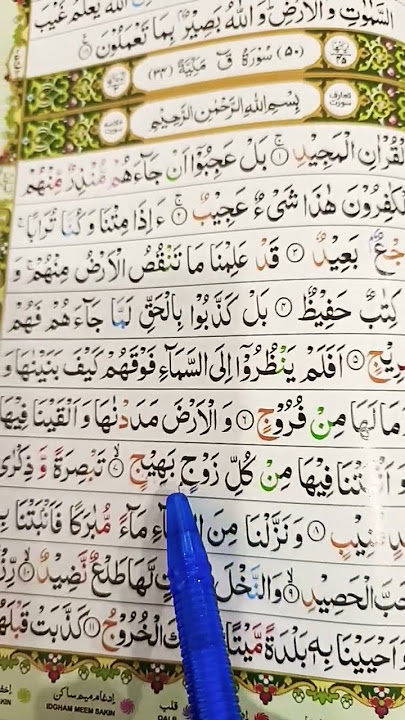 السَّمٰوٰتِ وَالْاَرْضِ ؕ وَاللّٰهُ بَصِيْرٌۢ بِمَا تَعْمَلُوْنَ
(٥٠) سُوْرَةُ قٓ مَكِّيَّةٌ (٣٤)
بِسْمِ اللّٰهِ الرَّحْمٰنِ الرَّحِيْمِ
الْقُرْاٰنِ الْمَجِيْدِ ۝١ بَلْ عَجِبُوْۤا اَنْ جَآءَهُمْ مُّنْذِرٌ مِّنْهُمْ
الْكٰفِرُوْنَ هٰذَا شَىْءٌ عَجِيْبٌ ۝٢ ءَاِذَا مِتْنَا وَكُنَّا تُرَابًا ۚ
بَعِيْدٌ ۝٣ قَدْ عَلِمْنَا مَا تَنْقُصُ الْاَرْضُ مِنْهُمْ ۚ وَ
كِتٰبٌ حَفِيْظٌ ۝٤ بَلْ كَذَّبُوْا بِالْحَقِّ لَمَّا جَآءَهُمْ فَهُمْ
مَّرِيْجٍ ۝٥ اَفَلَمْ يَنْظُرُوْۤا اِلَى السَّمَآءِ فَوْقَهُمْ كَيْفَ بَنَيْنٰهَا وَ
وَمَا لَهَا مِنْ فُرُوْجٍ ۝٦ وَالْاَرْضَ مَدَدْنٰهَا وَاَلْقَيْنَا فِيْهَا
وَاَنْۢبَتْنَا فِيْهَا مِنْ كُلِّ زَوْجٍۭ بَهِيْجٍ ۝٧ تَبْصِرَةً وَّ ذِكْرٰى
مُّنِيْبٍ ۝٨ وَنَزَّلْنَا مِنَ السَّمَآءِ مَآءً مُّبٰرَكًا فَاَنْۢبَتْنَا بِهٖ
حَبَّ الْحَصِيْدِ ۝٩ وَالنَّخْلَ لَّهَا طَلْعٌ نَّضِيْدٌ ۝١٠ رِّزْقًا
وَاَحْيَيْنَا بِهٖ بَلْدَةً مَّيْتًا الْخُرُوْجُ ۝١١ كَذَّبَتْ قَبْلَهُمْ
ادغام میم ساکن
IDGHAM MEEM SAKIN
قلب
QALB